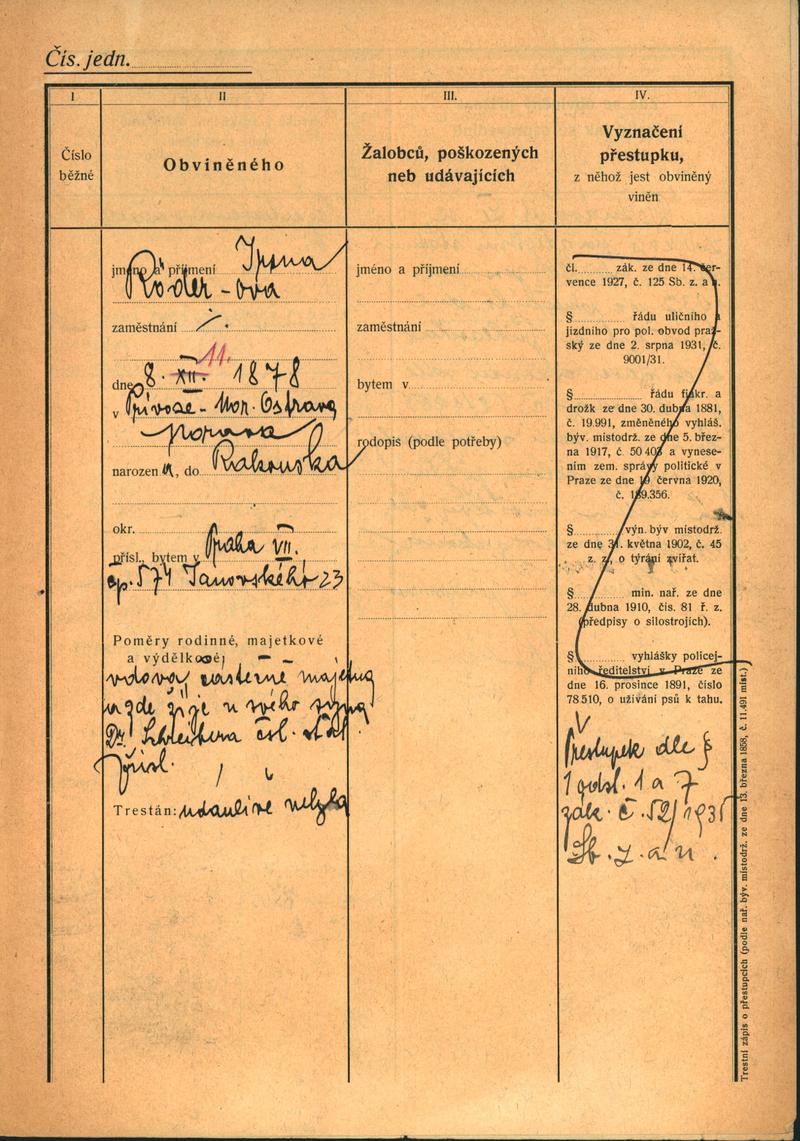 Čís. jedn.
I
II
III.
IV.
Číslo
běžné
Obviněného
Žalobců, poškozených
neb udávajících
Vyznačení
přestupku,
z něhož jest obviněný
viněn
jméno a příjmení Irena
Röder-ová
zaměstnání /.
11.
dne 8. XII. 1878
v Přívoze - Mor. Ostrava
Morava
narozen a, do Rakouska
okr.
přísl., bytem v Praha VII.
čp. 574 Janovského 23
Poměry rodinné, majetkové
a výdělkové:
vdova, částečně majetná
a zde žije u svého syna
Dr. Schreibera čsl. stát.
přísl.
Trestán: udánlivě nebyla
jméno a příjmení
zaměstnání
bytem v
rodopis (podle potřeby)
čl. zák. ze dne 14. čer-
vence 1927, č. 125 Sb. z. a n.
§ řádu uličního a
jízdního pro pol. obvod praž-
ský ze dne 2. srpna 1931, č.
9001/31.
§ řádu fiakr. a
drožk ze dne 30. dubna 1881,
č. 19.991, změněného vyhláš.
býv. místodrž. ze dne 5. břez-
na 1917, č. 50 403 a vynese-
ním zem. správy politické v
Praze ze dne 19. června 1920,
č. 189.356.
§ výn. býv místodrž.
ze dne 31. května 1902, č. 45
z. z., o týrání zvířat.
§ min. nař. ze dne
28. dubna 1910, čís. 81 ř. z.
(předpisy o silostrojích).
§ vyhlášky policej-
ního ředitelství v Praze ze
dne 16. prosince 1891, číslo
78510, o užívání psů k tahu.
Přestupek dle §
1 odst. 1 a 7
zák. č. 52/1935
Sb. z. a n.
Trestní zápis o přestupcích (podle nař. býv. místodrž. ze dne 13. března 1858, č. 11.491 míst.)